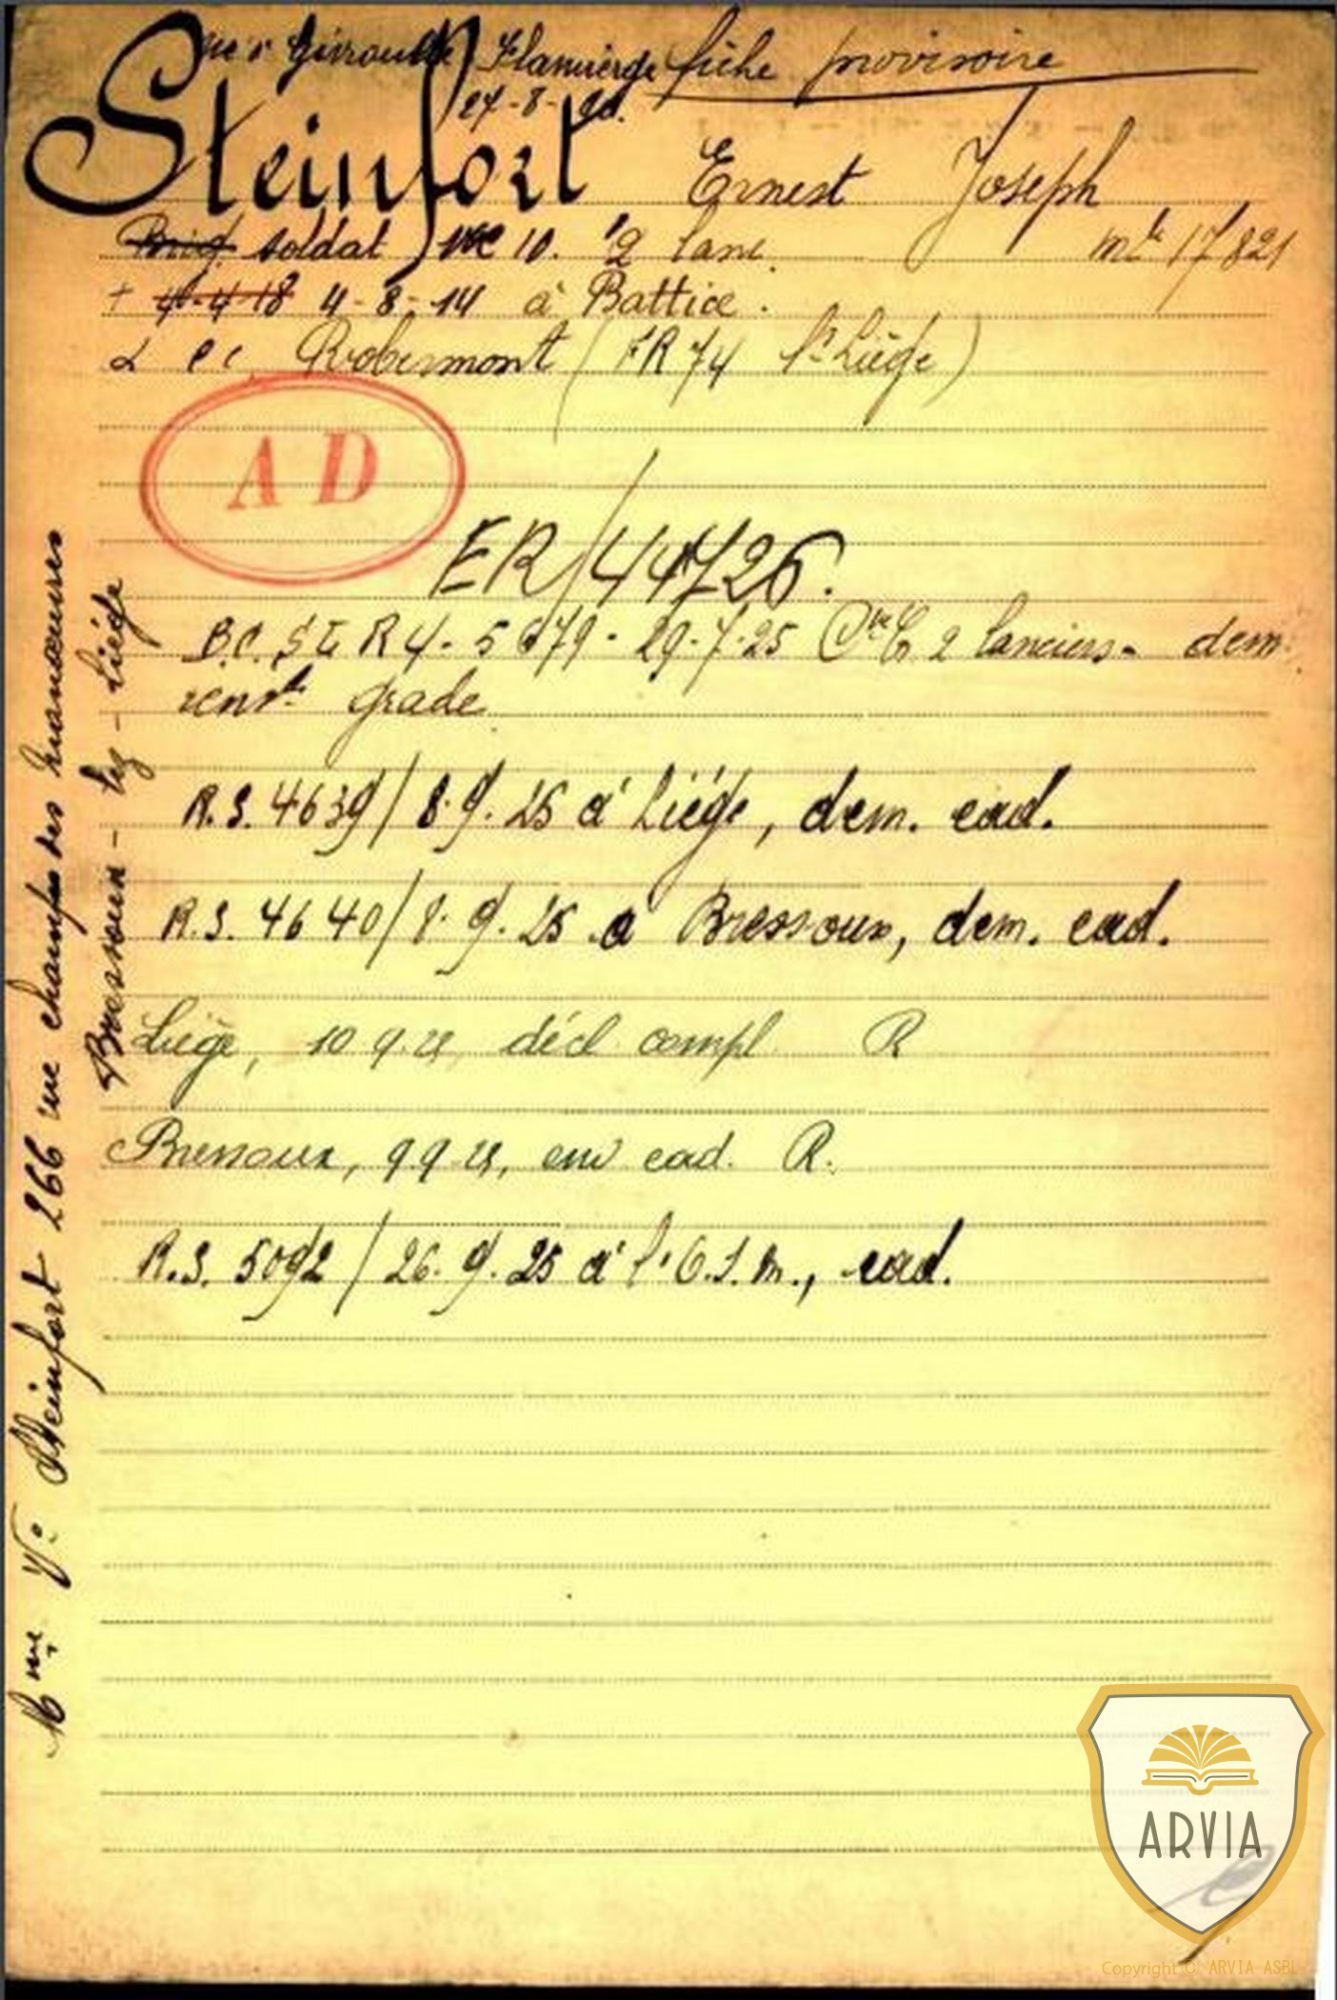 Flamierge fiche provisoire
27-8-90.
Steinfort Ernest Joseph
Brig. soldat mce 10. 2 lanc. mle 17821
+ 4-4-18 4-8-14 à Battice.
Robermont (FR 74 Liège)
A D
ER/44726.
B.C. R 4-5079-29-7-25 2 lanciers- dem.
renst grade
R.S. 4639/8.9.25 à Liège, dem. cad.
R.S. 4640/8.9.25 à Bressoux, dem. cad.
Liège, 10.9.25, décl. compl. R
Bressoux, 9.9.25, env cad. R.
R.S. 5092/26.9.25 à l'O.I.M., cad.
Mme Ve Steinfort 266 rue champs des manoeuvres
Bressoux - lez - Liège
ARVIA
Copyright © ARVIA ASBL